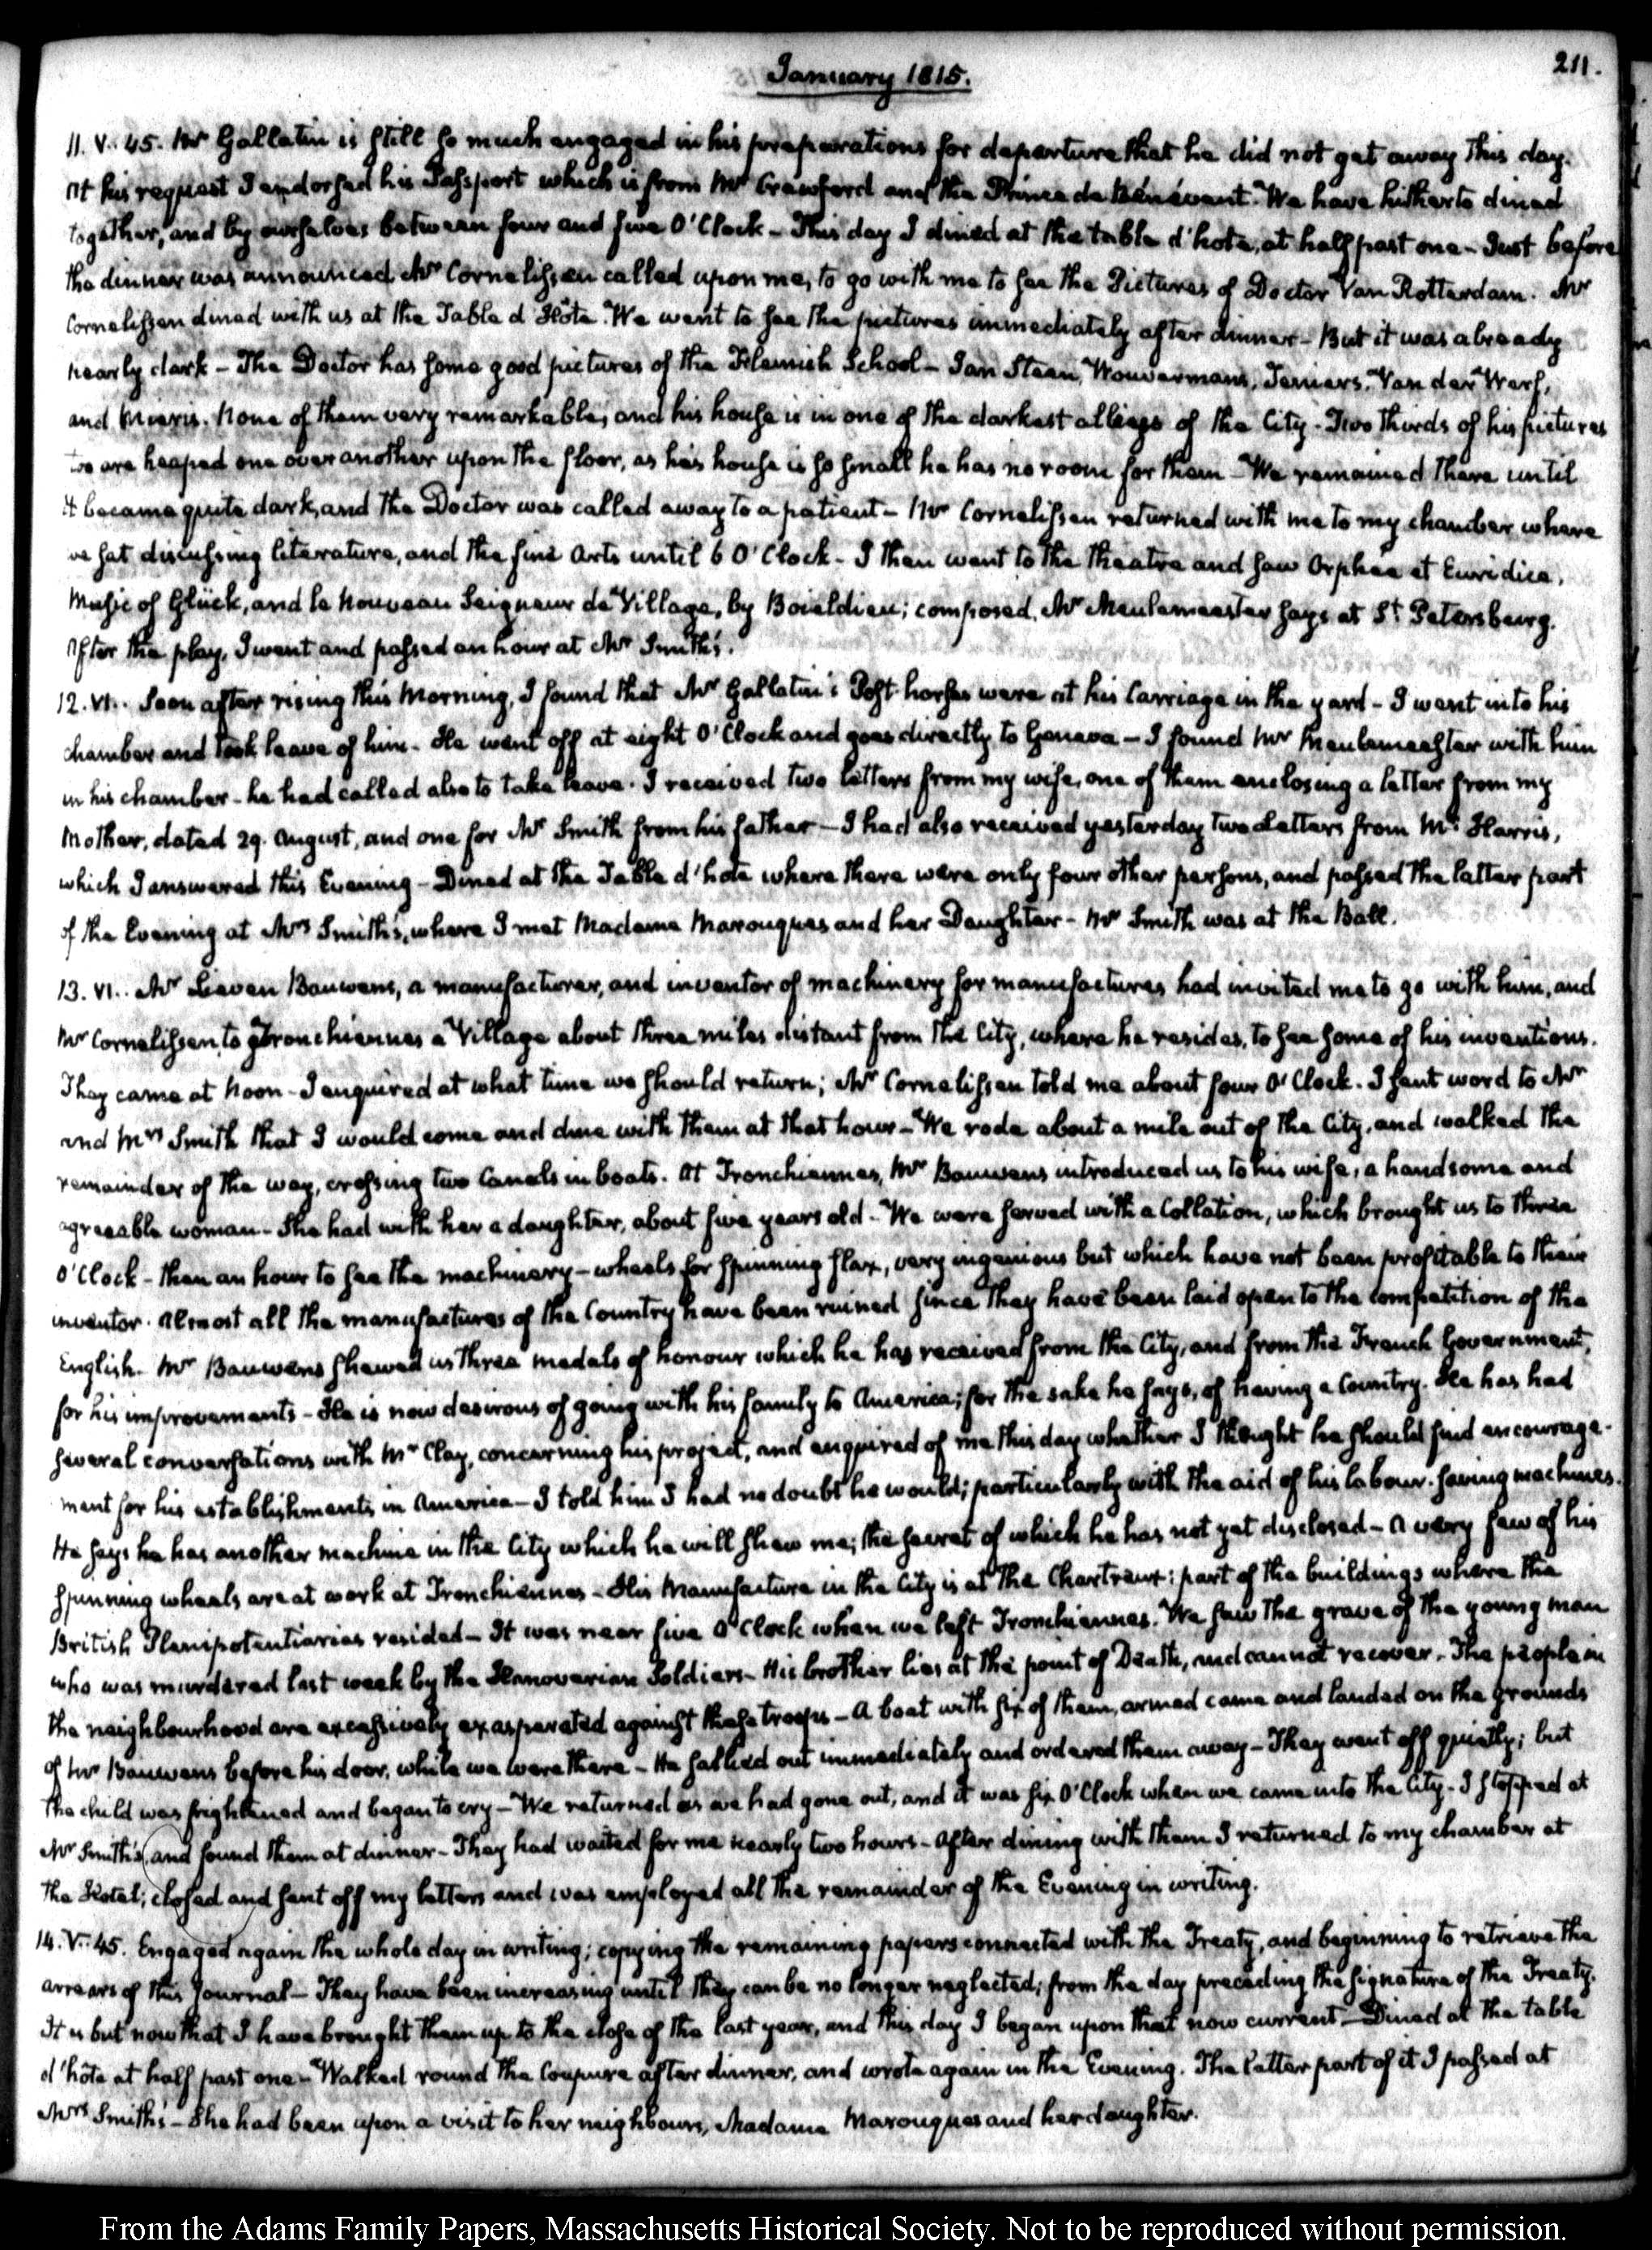 January 1815.
211.
11. V: 45. Mr Gallatin is still so much engaged in his preparations for departure that he did not get away this day.
At his request I endorsed his Passport which is from Mr Crawford and the Prince de Bénévent. We have hitherto dined
together, and by ourselves between four and five O'Clock - This day I dined at the table d'hote, at half past one - Just before
the dinner was announced Mr Cornelissen called upon me, to go with me to see the Pictures of Doctor Van Rotterdam. Mr
Cornelissen dined with us at the Table d'Hôte. We went to see the pictures immediately after dinner - But it was already
nearly dark - The Doctor has some good pictures of the Flemish School - Jan Steen, Wouvermans, Teniers, Van der Werf,
and Mieris. None of them very remarkable, and his house is in one of the darkest alleys of the City - Two thirds of his pictures
are heaped one over another upon the floor, as his house is so small he has no room for them - We remained there until
it became quite dark, and the Doctor was called away to a patient - Mr Cornelissen returned with me to my chamber where
we sat discussing literature, and the fine Arts until 6 O'Clock - I then went to the Theatre and saw Orphée et Euridice,
Music of Glück, and le Nouveau Seigneur de Village, by Boieldieu; composed, Mr Meulemeester says at St Petersburg.
After the play, I went and passed an hour at Mr Smith's.
12. VI.. Soon after rising this Morning, I found that Mr Gallatin's Post-horses were at his Carriage in the yard - I went into his
chamber and took leave of him - He went off at eight O'Clock and goes directly to Geneva - I found Mr Meulemeester with him
in his chamber - he had called also to take leave. I received two letters from my wife, one of them enclosing a letter from my
Mother, dated 29. August, and one for Mr Smith from his father - I had also received yesterday two Letters from Mr Harris,
which I answered this Evening - Dined at the Table d'hote where there were only four other persons, and passed the latter part
of the Evening at Mrs Smith's, where I met Madame Marouques and her Daughter - Mr Smith was at the Ball.
13. VI.. Mr Lieven Bauwens, a manufacturer, and inventor of machinery for manufactures had invited me to go with him, and
Mr Cornelissen, to Tronchiennes a Village about three miles distant from the City, where he resides, to see some of his inventions.
They came at Noon - I enquired at what time we should return; Mr Cornelissen told me about four O'Clock. I sent word to Mr
and Mrs Smith that I would come and dine with them at that hour - We rode about a mile out of the City, and walked the
remainder of the way, crossing two Canals in boats. At Tronchiennes, Mr Bauwens introduced us to his wife, a handsome and
agreeable woman - She had with her a daughter, about five years old - We were served with a Collation, which brought us to three
O'Clock - then an hour to see the machinery - wheels for spinning flax, very ingenious but which have not been profitable to their
inventor. Almost all the manufactures of the Country have been ruined since they have been laid open to the competition of the
English. Mr Bauwens shewed us three medals of honour which he has received from the City, and from the French Government,
for his improvements - He is now desirous of going with his family to America; for the sake he says, of having a Country. He has had
several conversations with Mr Clay, concerning his project, and enquired of me this day whether I thought he should find encourage-
ment for his establishments in America - I told him I had no doubt he would; particularly with the aid of his labour-saving machines.
He says he has another machine in the City which he will shew me; the secret of which he has not yet disclosed - A very few of his
spinning wheels are at work at Tronchiennes - His Manufacture in the City is at the Chartreux: part of the buildings where the
British Plenipotentiaries resided - It was near five O'Clock when we left Tronchiennes. We saw the grave of the young man
who was murdered last week by the Hanoverian Soldiers - His brother lies at the point of Death, and cannot recover. The people in
the neighbourhood are excessively exasperated against these troops - A boat with six of them, armed came and landed on the grounds
of Mr Bauwens before his door, while we were there - He sallied out immediately and ordered them away - They went off quietly; but
the child was frightened and began to cry - We returned as we had gone out, and it was six O'Clock when we came into the City - I stopped at
Mr Smith's, and found them at dinner - They had waited for me nearly two hours - After dining with them I returned to my chamber at
the Hotel; closed and sent off my letters and was employed all the remainder of the Evening in writing.
14. V: 45. Engaged again the whole day in writing; copying the remaining papers connected with the Treaty, and beginning to retrieve the
arrears of this Journal - They have been increasing until they can be no longer neglected; from the day preceding the signature of the Treaty.
It is but now that I have brought them up to the close of the last year, and this day I began upon that now current - Dined at the table
d'hôte at half past one - Walked round the Coupure after dinner, and wrote again in the Evening. The latter part of it I passed at
Mrs Smith's - She had been upon a visit to her neighbours, Madame Marouques and her daughter.
From the Adams Family Papers, Massachusetts Historical Society. Not to be reproduced without permission.